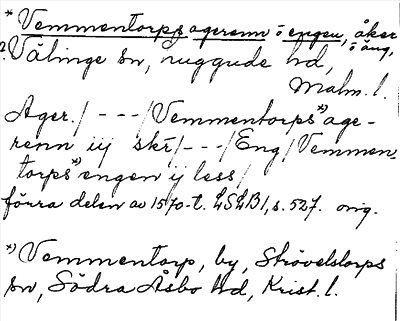 * Vemmentorps agerenn o engen, åker
? Välinge sn, ruggude hd, o äng,
Malm. l.
Ager./---/Vemmentorps*) age-
renn iij skr̄/---/Eng/Vemmen-
torps*) engen ij less/
förra delen av 1570-t. LSLB1, s. 527. orig.
*) Vemmentorp, by, Strövelstorps
sn, Södra Åsbo hd, Krist. l.